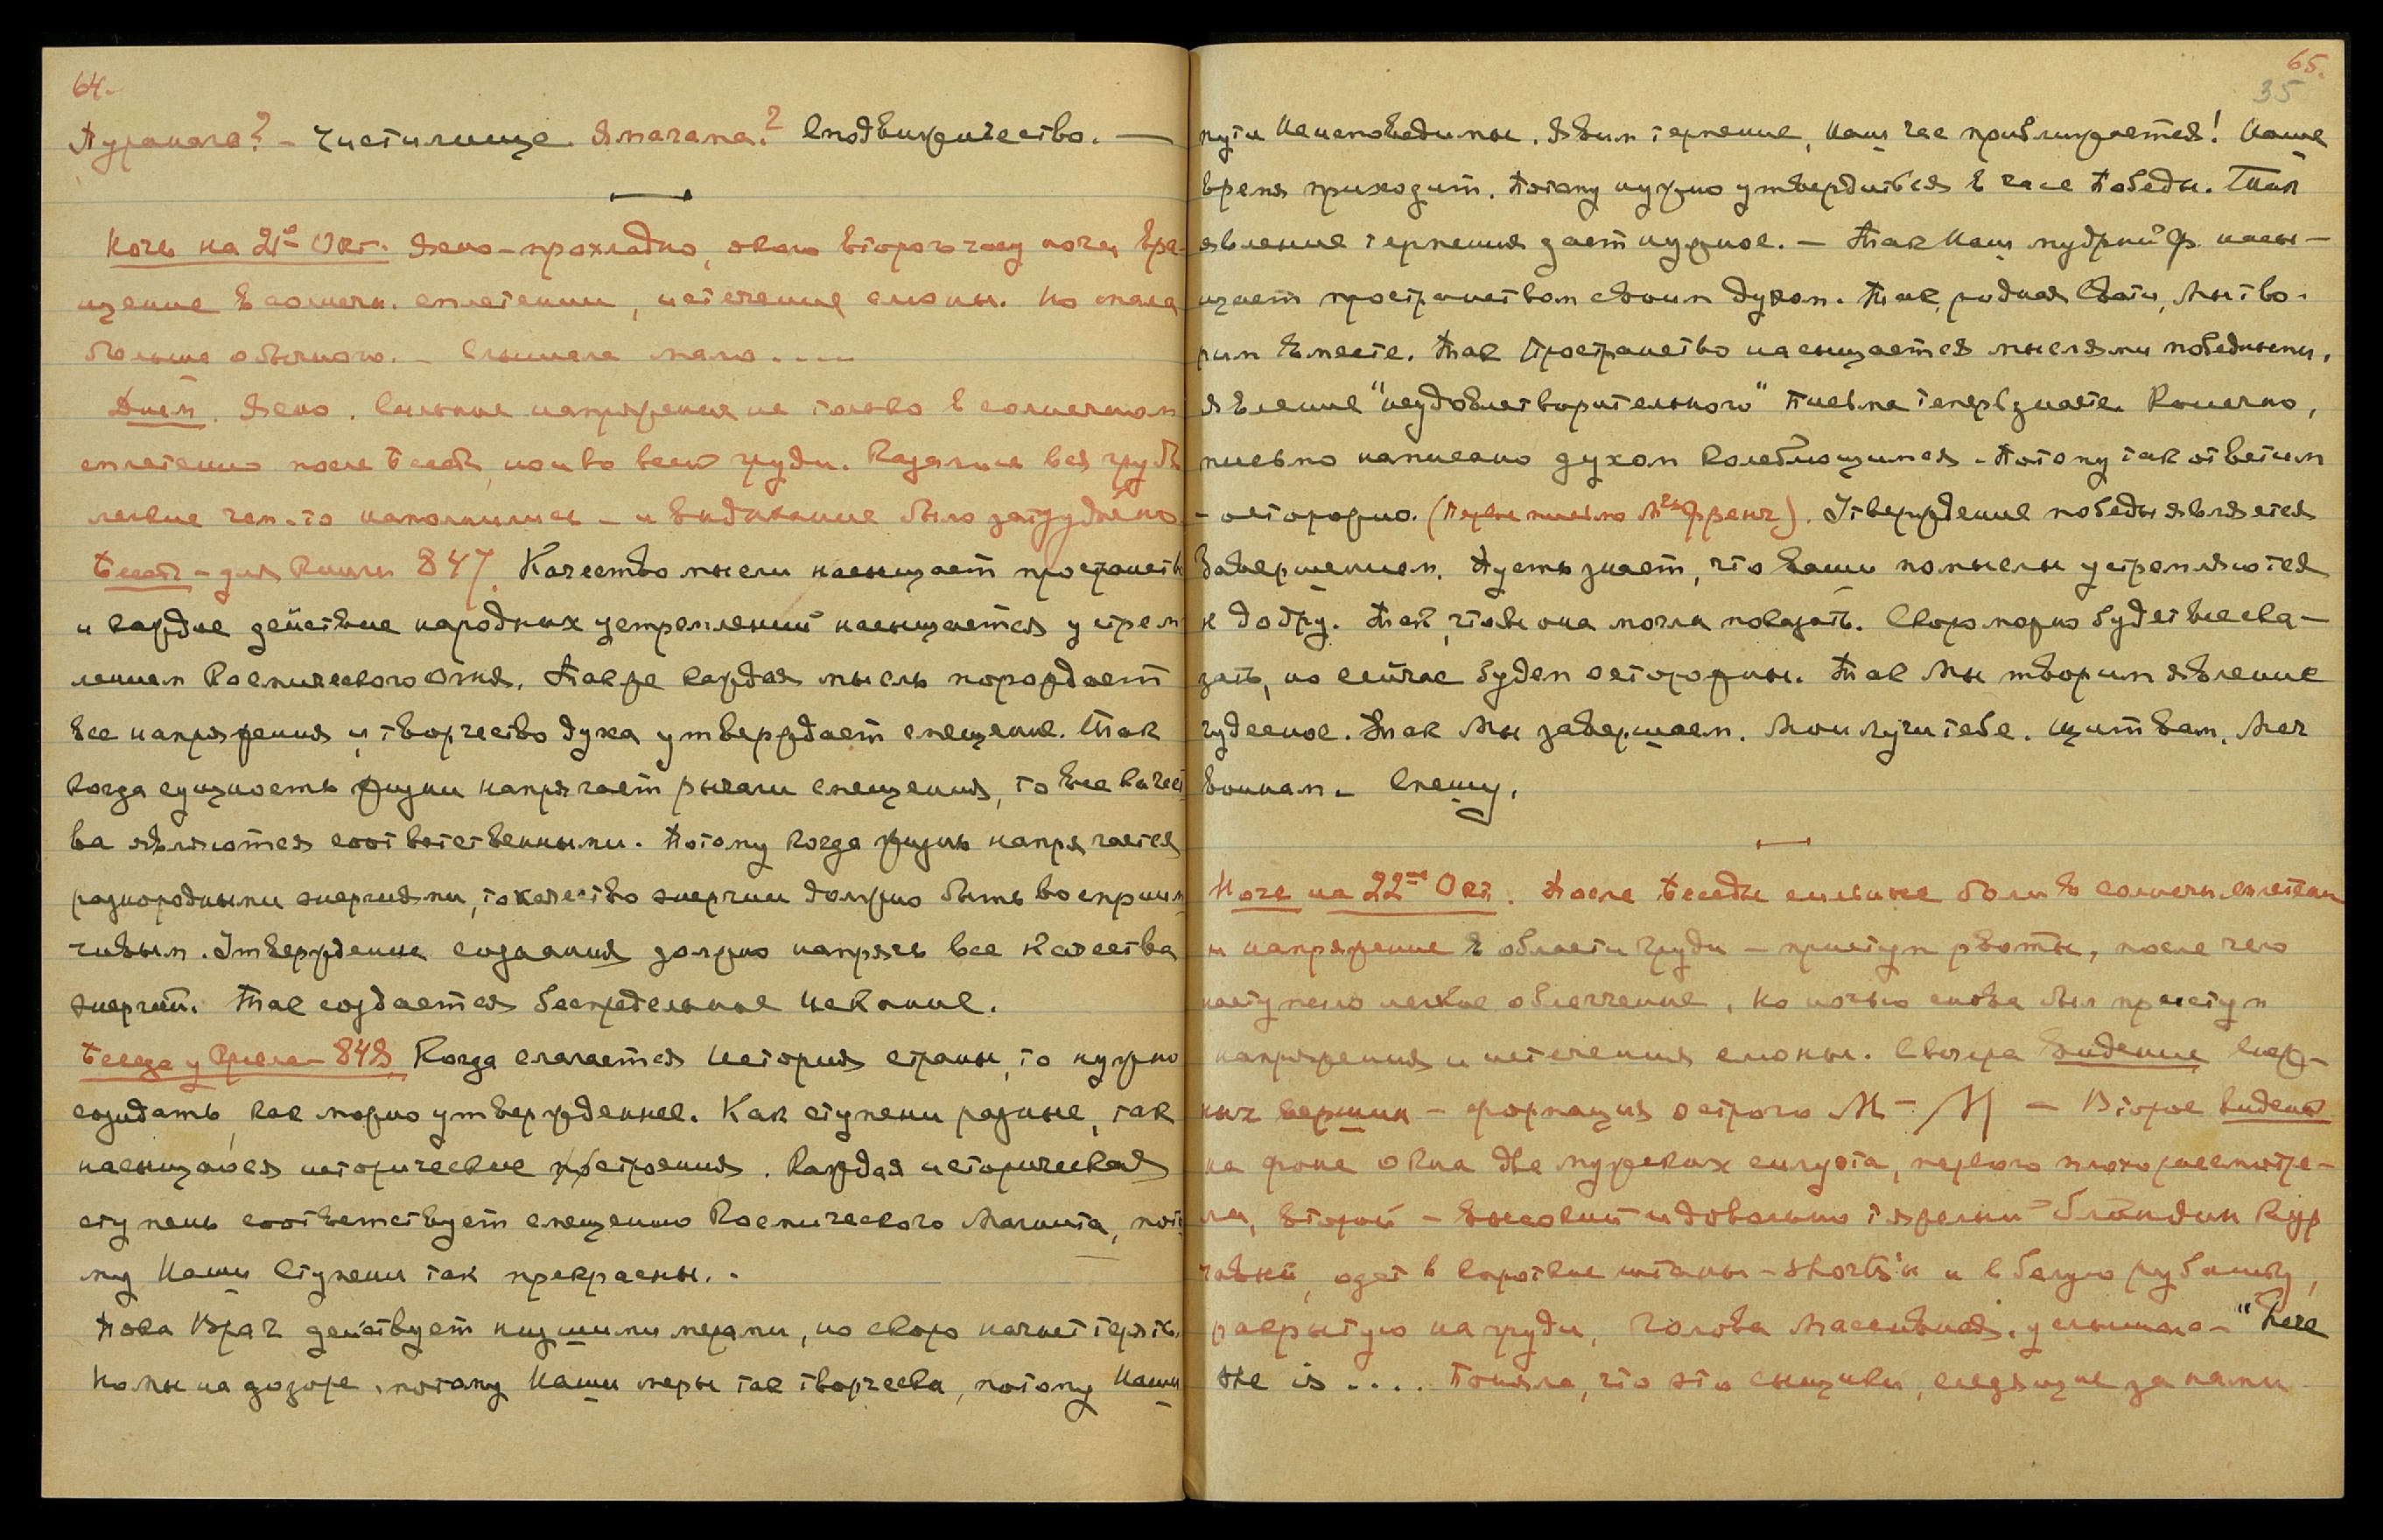 64.
Пуранаго? – Чистилище. Ямагама? Сподвижничество. —
Ночь на 21ое Окт. Ясно – прохладно, около второго часу ночи вра-
щение в солнечн. сплетении, истечение слюны. Но спала
больше обычного. – Слышала мало....
Днем. Ясно. Сильные напряжения не только в солнечном
сплетении после Бесед, но и во всей груди. Казалось вся грудь
легкие чем-то наполнились – и выдыхание было затруднено
Бесед. – для Книги 847. Качество мысли насыщает пространств
и каждое действие народных устремлений насыщается устрем
лением Космического Огня. Также каждая мысль порождает
все напряжения и творчество духа утверждает смещение. Так
когда сущность жизни напрягает рычаги смещения, то все качест
ва являются соответственными. Потому когда жизнь напрягается
разнородными энергиями, то качество энергии должно быть восприим
чивым. Утверждение создания должно напрячь все качества
энергий. Так создается беспредельное искание.
Беседа у Кресла – 848. Когда слагается История страны, то нужно
созидать, как можно утвержденнее. Как ступени разные, так
насыщаются исторические построения. Каждая историческая
ступень соответствует смещению Космического Магнита, пото
му Наши Ступени так прекрасны. -
Пока Враг действует низшими мерами, но скоро начнет терять.
Но мы на дозоре, потому Наши меры так творчески, потому Наши
65.
35
пути неисповедимы. Явим терпение, Наш час приближается! Наше
время приходит. Потому нужно утвердиться в часе Победы. Так
явление терпения дает нужное. – Так Наш мудрый Ф. насы-
щает пространством своим духом. Так, родная Свати, Мы тво-
рим вместе. Так Пространство насыщается мыслями победными,
явление "неудовлетворительного" Письма теперь знаете. Конечно,
письмо написано духом колеблющимся. Потому так ответим
– осторожно. (Первое письмо Мsс Френч). Утверждение победы является
завершением. Пусть знает, что ваши помыслы устремляются
к добру. Так, чтобы она могла показать. Скоро можно будет все ска-
зать, но сейчас будем осторожны. Так Мы творим явление
чудесное. Так Мы завершаем. Мои лучи тебе. Щит вам. Меч
воинам. – Спешу.
Ночь на 22ое Окт. После Беседы сильные боли в солнечн. сплетени
и напряжение в области груди – приступ рвоты, после чего
наступило легкое облегчение. Но ночью снова был приступ
напряжения и истечения слюны. С вечера Видение снеж-
ных вершин – формация острого М – М – Второе видение
на фоне окна две мужских силуэта, первого плохо рассмотре-
ла, второй – высокий и довольно тяжелый – блондин кур
чавый, одет в короткие штаны – shorts'ы и в белую рубашку,
раскрытую на груди, голова массивная. услышала – "here
she is .... Поняла, что это сыщики, следящие за нами